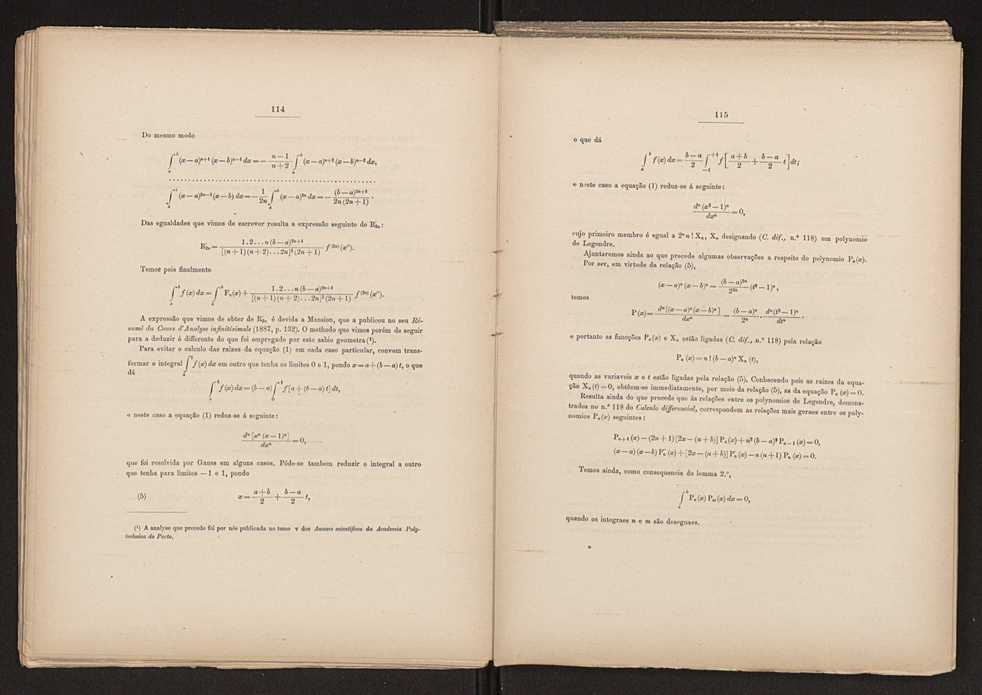 114
Do mesmo modo
∫ₐᵇ (x−a)ⁿ⁺¹ (x−b)ⁿ⁻¹ dx = − (n−1)/(n+2) ∫ₐᵇ (x−a)ⁿ⁺² (x−b)ⁿ⁻² dx,
. . . . . . . . . . . . . . . . . . . . . . . . . . . . . . . . . . . . . . . .
∫ₐᵇ (x−a)²ⁿ⁻¹ (x−b) dx = − 1/2n ∫ₐᵇ (x−a)²ⁿ dx = − (b−a)²ⁿ⁺¹/2n(2n+1) .
Das egualdades que vimos de escrever resulta a expressão seguinte de R₂ₙ:
R₂ₙ = 1.2...n(b−a)²ⁿ⁺¹/[(n+1)(n+2)...2n]³(2n+1) f⁽²ⁿ⁾(x').
Temos pois finalmente
∫ₐᵇ f(x) dx = ∫ₐᵇ Fₙ(x) + 1.2...n(b−a)²ⁿ⁺¹/[(n+1)(n+2)...2n]³(2n+1) f⁽²ⁿ⁾(x').
A expressão que vimos de obter de R₂ₙ é devida a Mansion, que a publicou no seu Ré-
sumé du Cours d'Analyse infinitésimale (1887, p. 132). O methodo que vimos porém de seguir
para a deduzir é differente do que foi empregado por este sabio geometra (¹).
Para evitar o calculo das raizes da equação (1) em cada caso particular, convem trans-
formar o integral ∫ₐᵇ f(x) dx em outro que tenha os limites 0 e 1, pondo x=a+(b−a)t, o que
dá
∫ₐᵇ f(x) dx = (b−a) ∫₀¹ f[a+(b−a)t] dt,
e neste caso a equação (1) reduz-se á seguinte:
dⁿ[xⁿ(x−1)ⁿ]/dxⁿ = 0,
que foi resolvida por Gauss em alguns casos. Póde-se tambem reduzir o integral a outro
que tenha para limites −1 e 1, pondo
(5) x = (a+b)/2 + (b−a)/2 t,
(¹) A analyse que precede foi por nós publicada no tomo v dos Annaes scientificos da Academia Poly-
technica do Porto.
115
o que dá
∫ₐᵇ f(x) dx = (b−a)/2 ∫₋₁⁺¹ f[(a+b)/2 + (b−a)/2 t] dt;
e neste caso a equação (1) reduz-se á seguinte:
dⁿ(x²−1)ⁿ/dxⁿ = 0,
cujo primeiro membro é egual a 2ⁿ n! Xₙ, Xₙ designando (C. dif., n.º 118) um polynomio
de Legendre.
Ajuntaremos ainda ao que precede algumas observações a respeito do polynomio Pₙ(x).
Por ser, em virtude da relação (5),
(x−a)ⁿ(x−b)ⁿ = (b−a)²ⁿ/2²ⁿ (t²−1)ⁿ,
temos
P(x) = dⁿ[(x−a)ⁿ(x−b)ⁿ]/dxⁿ = (b−a)ⁿ/2ⁿ . dⁿ(t²−1)ⁿ/dtⁿ .
e portanto as funcções Pₙ(x) e Xₙ estão ligadas (C. dif., n.º 118) pela relação
Pₙ(x) = n!(b−a)ⁿ Xₙ(t),
quando as variaveis x e t estão ligadas pela relação (5). Conhecendo pois as raizes da equa-
ção Xₙ(t)=0, obtêem-se immediatamente, por meio da relação (5), as da equação Pₙ(x)=0.
Resulta ainda do que precede que ás relações entre os polynomios de Legendre, demons-
tradas no n.º 118 do Calculo differencial, correspondem as relações mais geraes entre os poly-
nomios Pₙ(x) seguintes:
Pₙ₊₁(x) − (2n+1)[2x−(a+b)] Pₙ(x) + n²(b−a)² Pₙ₋₁(x) = 0,
(x−a)(x−b) P″ₙ(x) + [2x−(a+b)] P′ₙ(x) − n(n+1) Pₙ(x) = 0.
Temos ainda, como consequencia do lemma 2.º,
∫ₐᵇ Pₙ(x) Pₘ(x) dx = 0,
quando os integraes n e m são deseguaes.